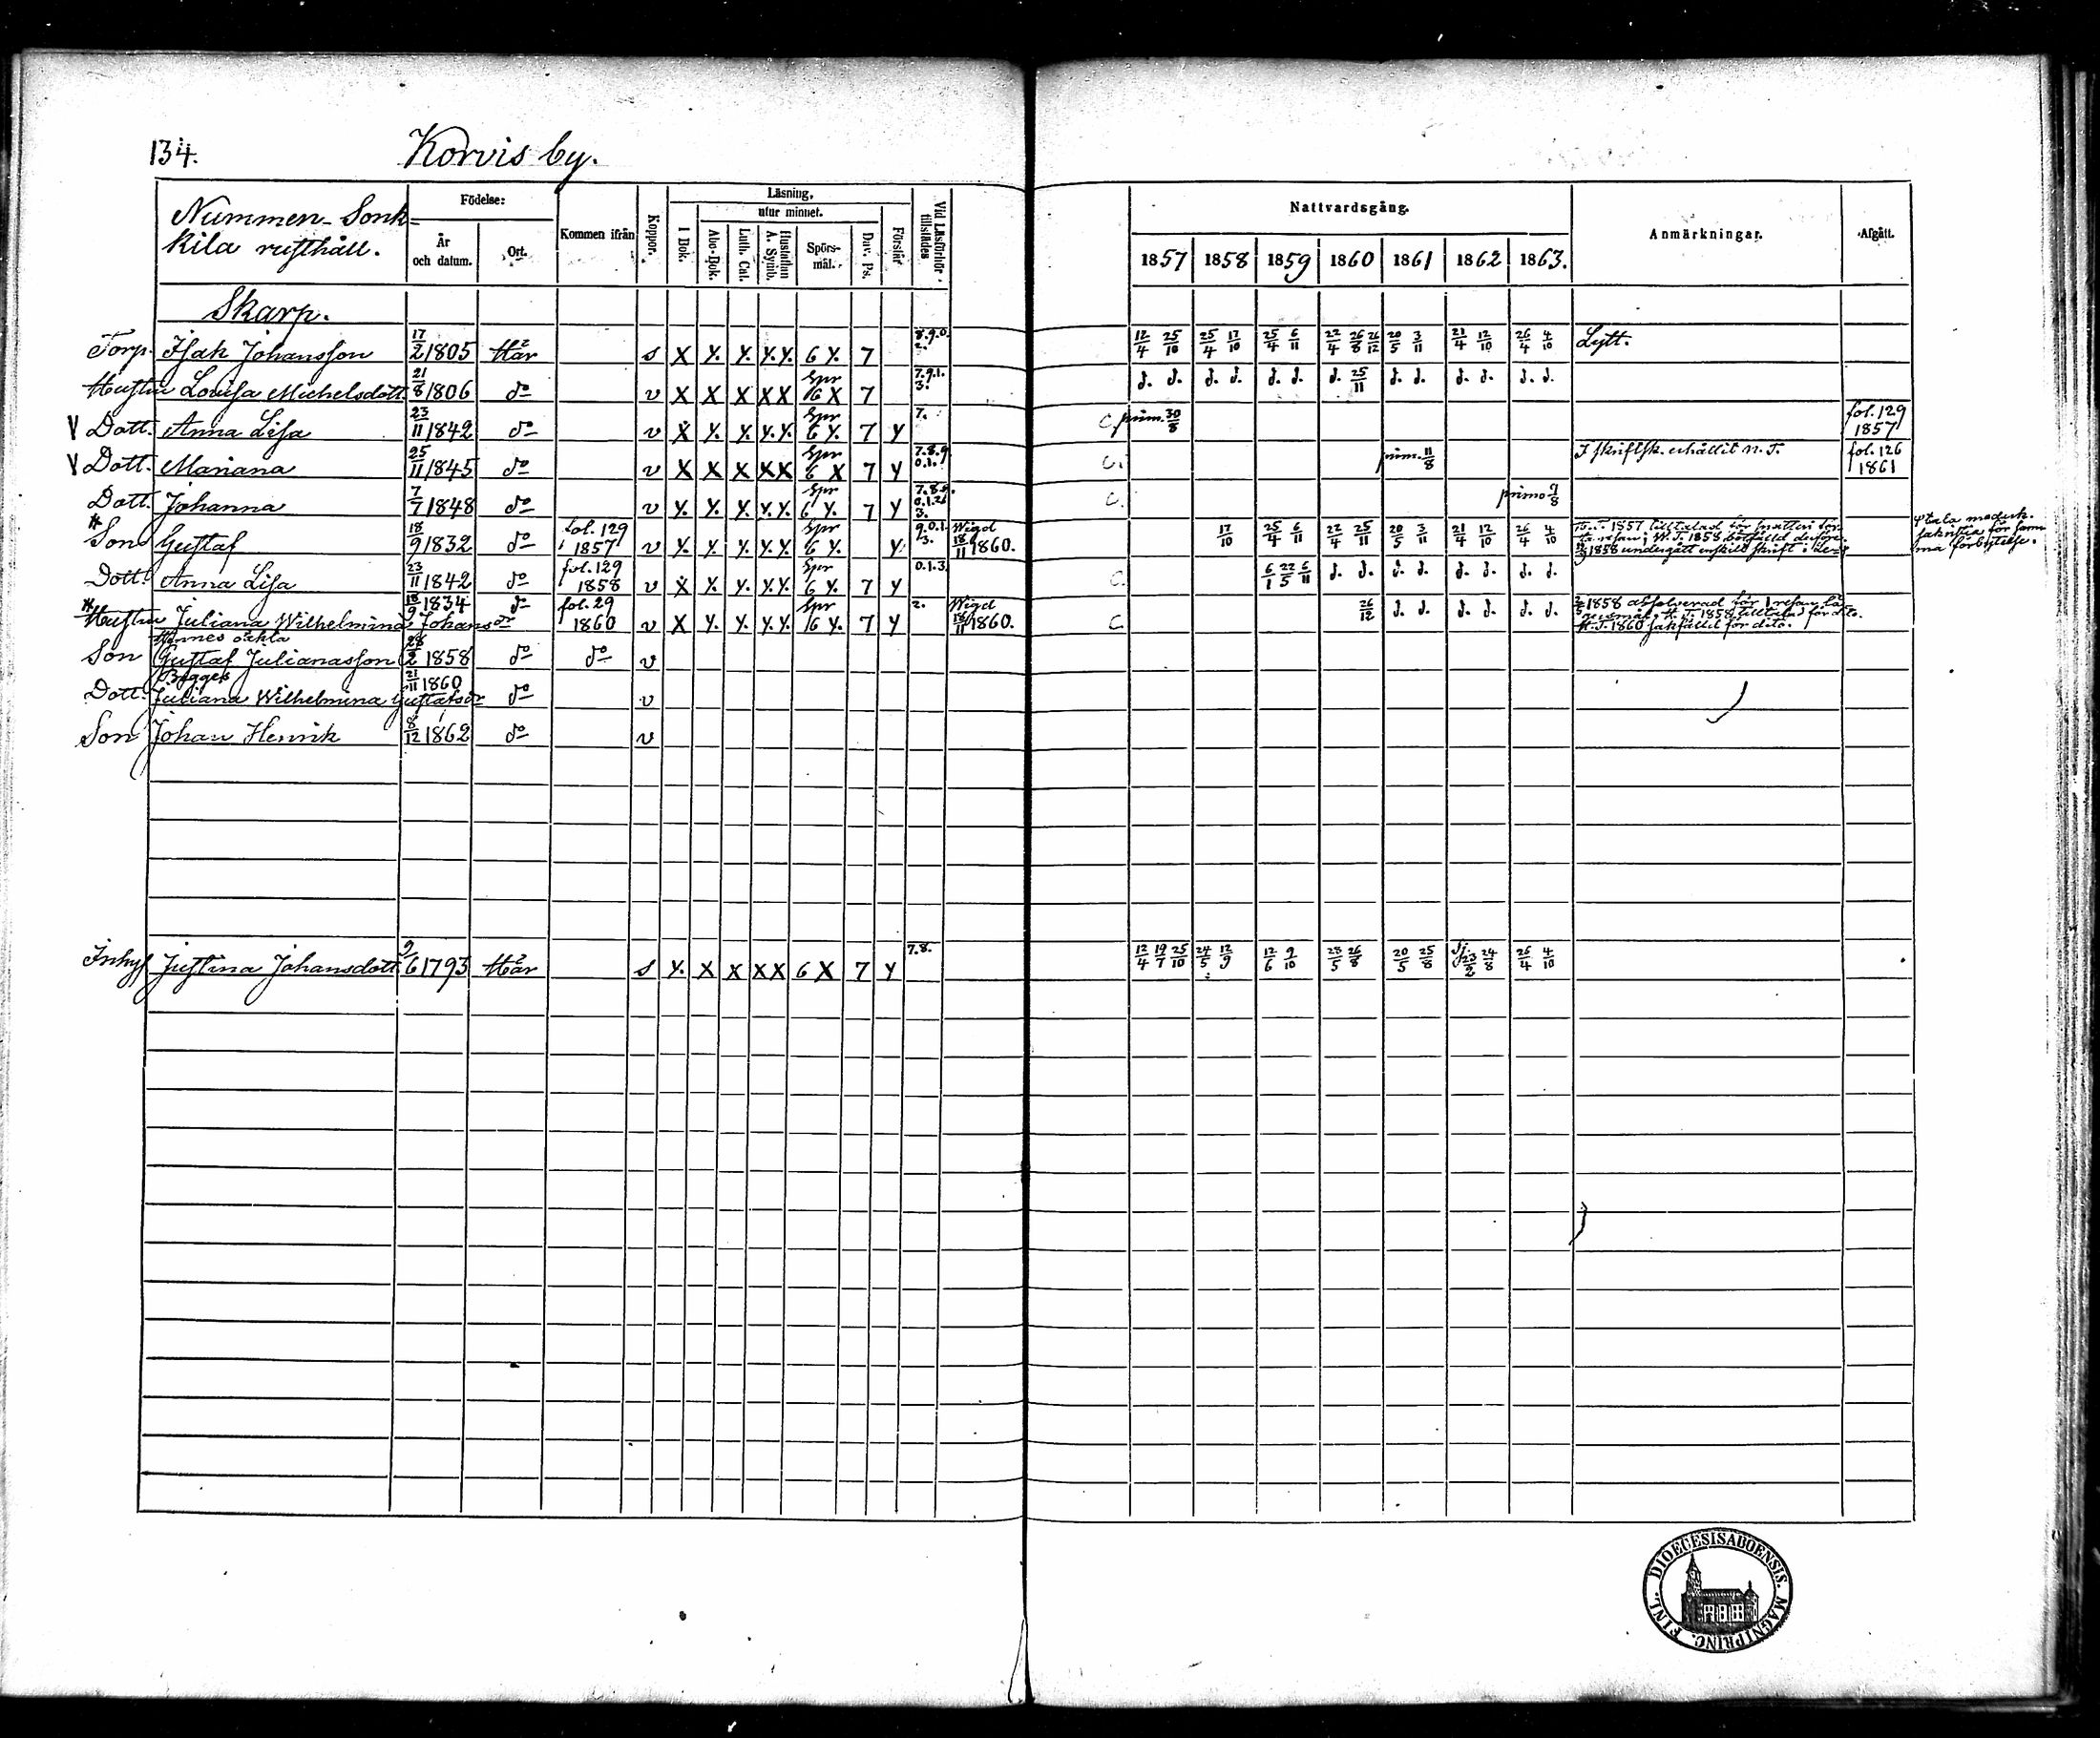 134. Korvis by.
Nummen-Sonk-
kila rusthåll.
Födelse:
År och datum.
Ort.
Kommen ifrån
Koppor.
Läsning,
utur minnet.
I Bok.
Abc-Bok.
Luth. Cat.
Hustaflan A. Symb.
Spörs-mål.
Dav. Ps.
Förstår
Vid Läsförhör tillstädes
Nattvardsgång.
1857 1858 1859 1860 1861 1862 1863.
Anmärkningar.
Afgått.
Skarp.
Torp. Isak Johansson 17/2 1805 Här s X Y. Y. Y. Y. 6 Y. 7 8.9.0. 2. 12/4 25/10 25/4 17/10 25/4 6/11 22/4 26/8 26/12 20/5 3/11 21/4 12/10 26/4 4/10 Lytt.
Hustru Lovisa Michelsdott. 21/8 1806 do v X X X X X Spr 6 X 7 7.9.1. 3. d. d. d. d. d. d. d. 25/11 d. d. d. d. d. d.
V Dott. Anna Lisa 23/11 1842 do v X Y. Y. Y. Y. Spr 6 Y. 7 Y 7. C. prim. 30/8 fol. 129 1857
V Dott. Mariana 25/11 1845 do v X X X X X Spr 6 X 7 Y 7.8.9. 0.1. C. prim. 11/8 I skriftsk. erhållit n. T. fol. 126 1861
Dott. Johanna 7/7 1848 do v Y. Y. Y. Y. Y. Spr 6 Y. 7 Y C. primo 9/8
* Son Gustaf 18/9 1832 do fol. 129 1857 v Y. Y. Y. Y. Y. Spr 6 Y. Y 9.0.1. 3. Wigd 18/11 1860. 17/10 25/4 6/11 22/4 25/11 20/5 3/11 21/4 12/10 26/4 4/10
Dott. Anna Lisa 23/11 1842 do fol. 129 1858 v X X. Y. Y. Y. Spr 6 Y. 7 Y 0.1.3. C. 6/1 22/5 6/11 d. d. d. d. d. d. d. d.
* Hustru Juliana Wilhelmina Johansdr 18/9 1834 do fol. 29 1860 v X Y. Y. Y. Y. Spr 6 Y. 7 Y 2. Wigd 18/11 1860. C. 26/12 d. d. d. d. d. d.
Hennes oäkta
Son Gustaf Julianasson 28/2 1858 do do v
Bägges
Dott. Juliana Wilhelmina Gustafsdr 21/11 1860 do v
Son Johan Henrik 8/12 1862 do v
Inhys Justina Johansdott. 9/6 1793 Här s Y. X X X X 6 X 7 Y 7.8. 12/4 19/7 25/10 24/5 12/9 12/6 9/10 28/5 26/8 20/5 25/8 24/8 26/4 4/10
DIOECESIS ABOENSIS. MAGNI PRINC. FINL.